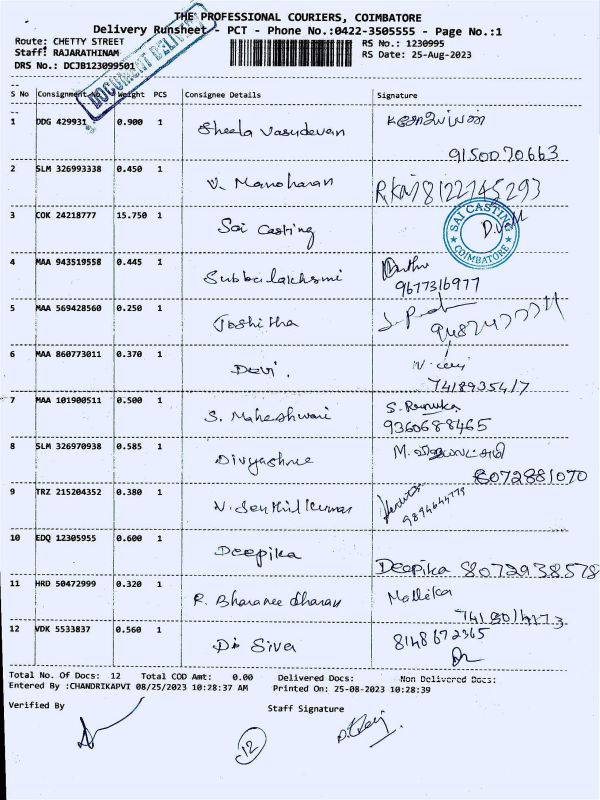 THE PROFESSIONAL COURIERS, COIMBATORE
Delivery Runsheet - PCT - Phone No.:0422-3505555 - Page No.:1
Route: CHETTY STREET
Staff: RAJARATHINAM
DRS No.: DCJB123099501
RS No.: 1230995
RS Date: 25-Aug-2023
DOCUMENT DELIVERY
S No Consignment No Weight PCS Consignee Details Signature
1 DDG 429931 0.900 1 Sheela Vasudevan
9150070663
2 SLM 326993338 0.450 1 V. Manoharan 8122745293
3 COK 24218777 15.750 1 Sai Casting
SAI CASTING
COIMBATORE
4 MAA 943519558 0.445 1 Subbulakshmi
9677316977
5 MAA 569428560 0.250 1 Joshitha
6 MAA 860773011 0.370 1 Devi.
7418935417
7 MAA 101900511 0.500 1 S. Maheshwari S. Renuka
9360688465
8 SLM 326970938 0.585 1 Divyashree
8072881070
9 TRZ 215204352 0.380 1 N. Senthilkumar
10 EDQ 12305955 0.600 1 Deepika
Deepika 8072938578
11 HRD 50472999 0.320 1 R. Bharaneedharan Mallika
12 VDK 5533837 0.560 1 Dr Siva 8148672365
Total No. Of Docs: 12 Total COD Amt: 0.00 Delivered Docs: Non Delivered Docs:
Entered By :CHANDRIKAPVI 08/25/2023 10:28:37 AM Printed On: 25-08-2023 10:28:39
Verified By Staff Signature
12